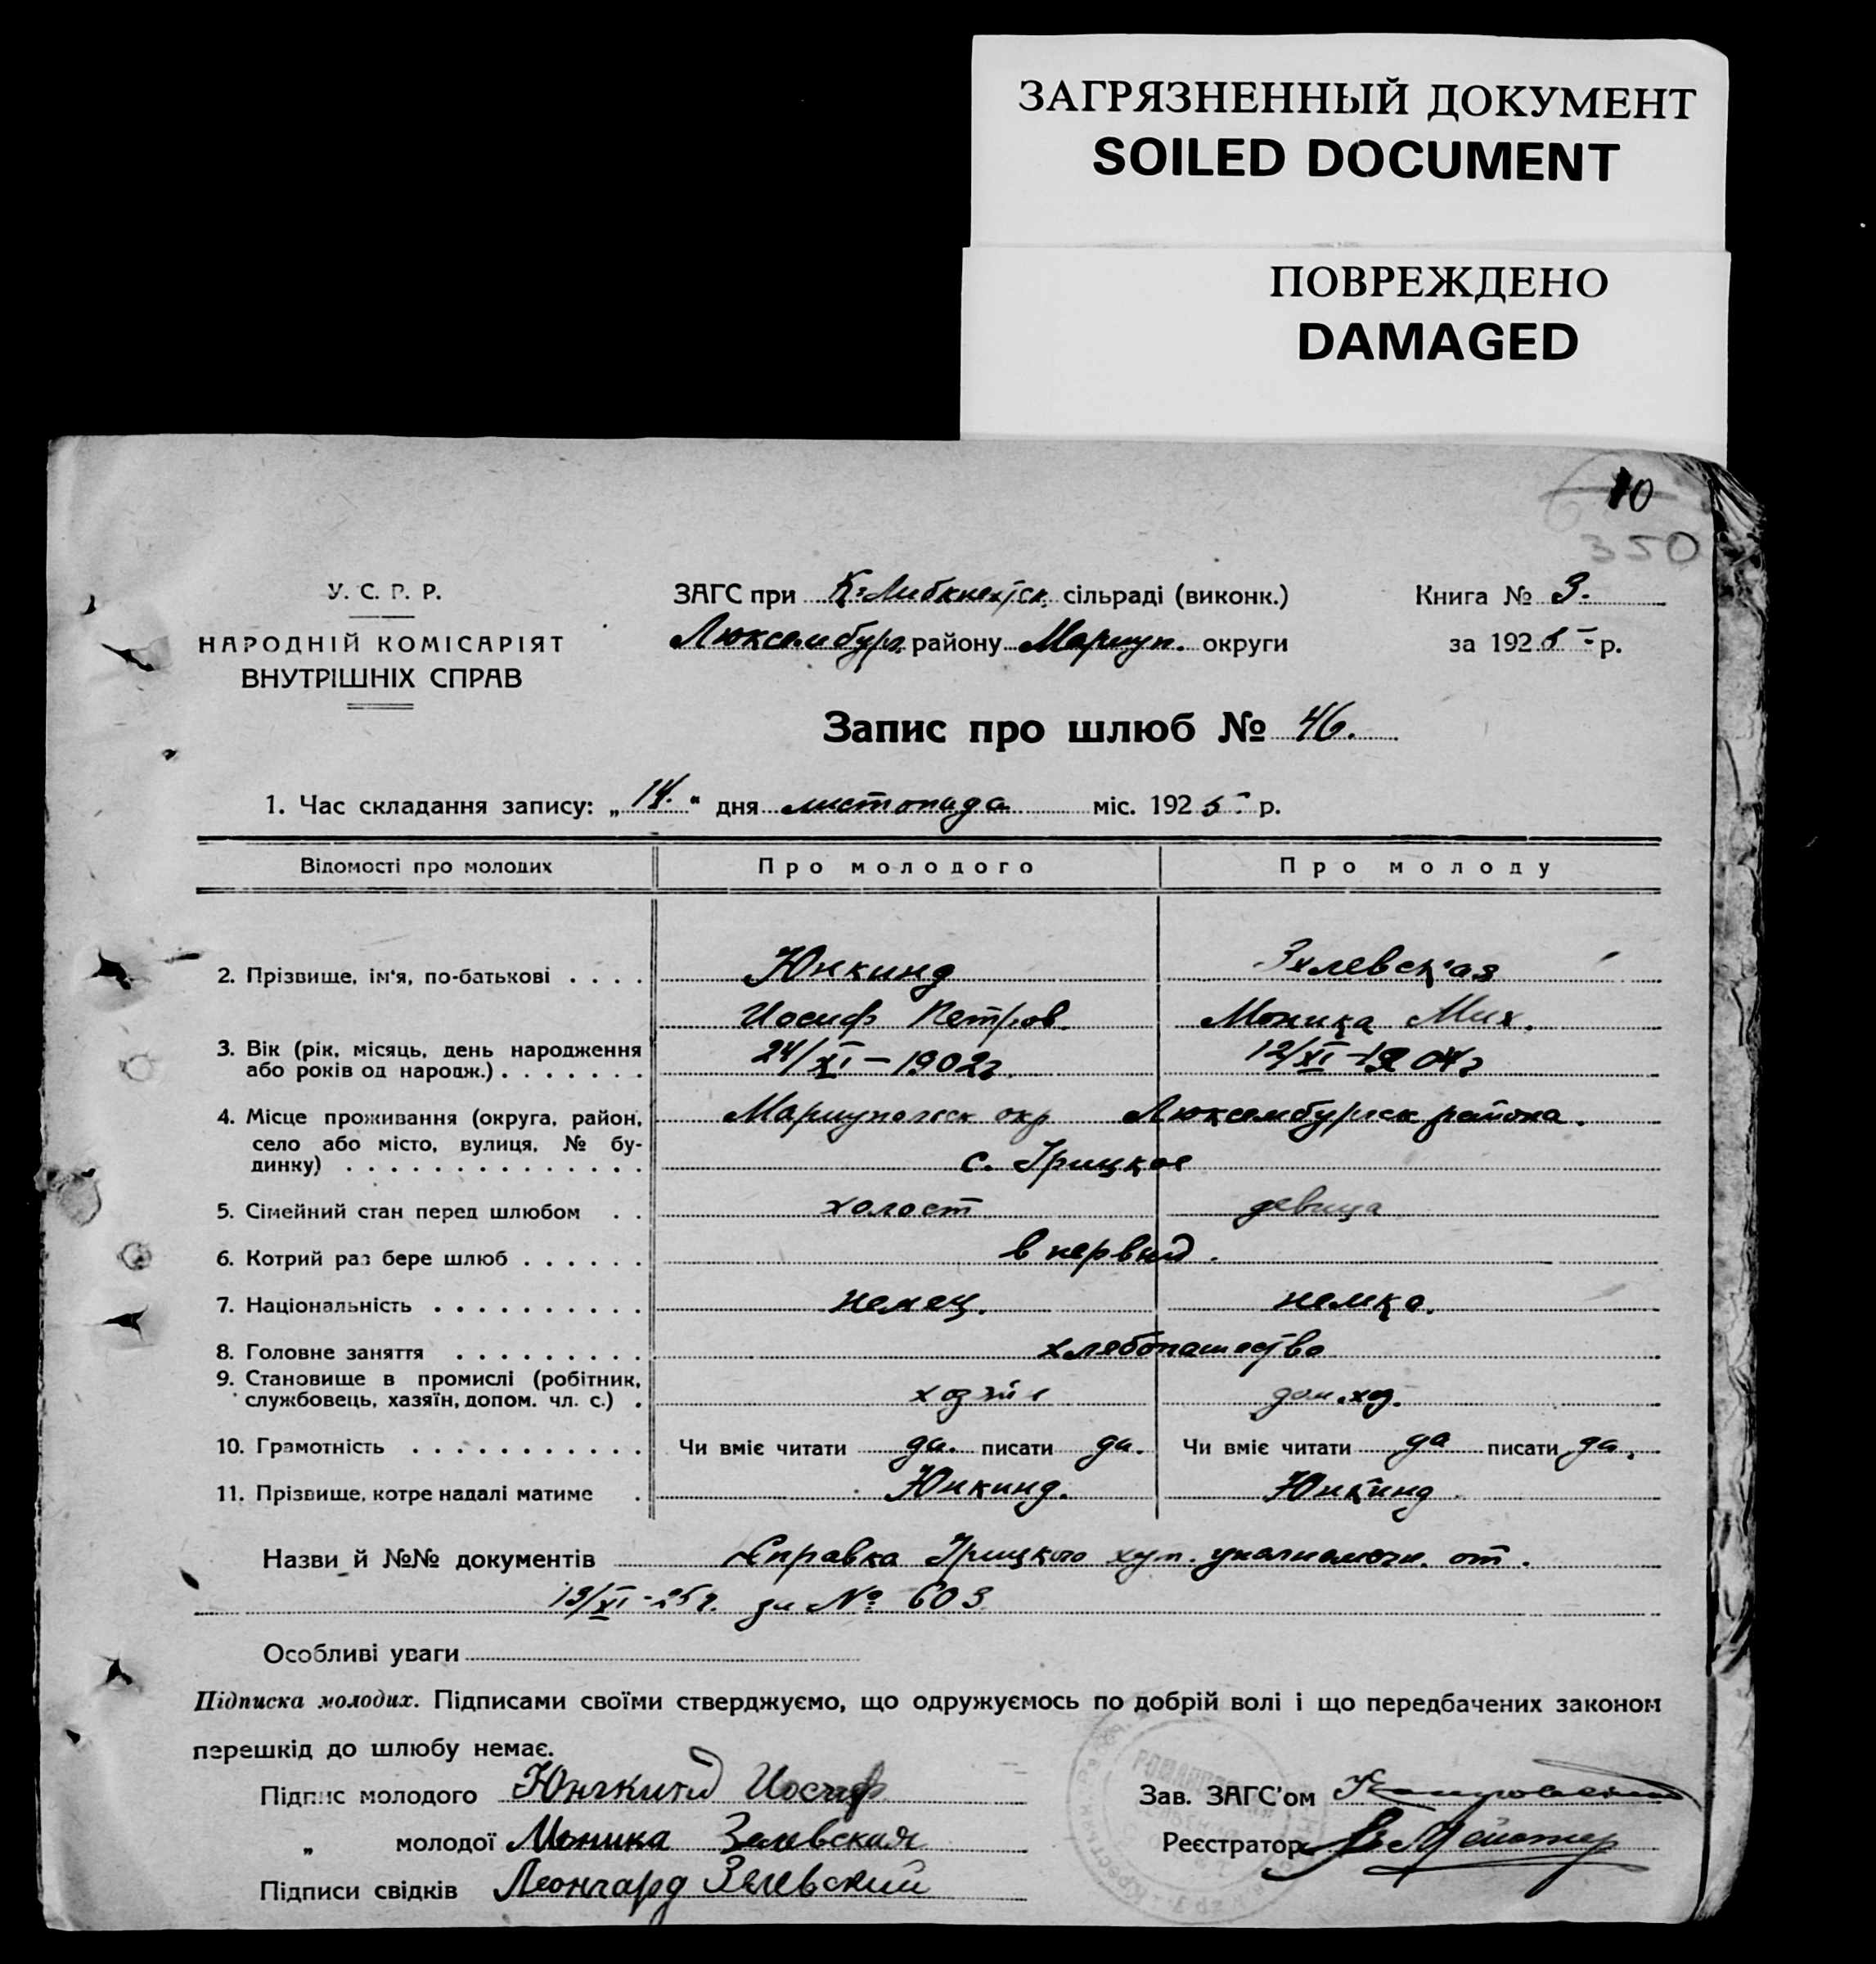 ЗАГРЯЗНЕННЫЙ ДОКУМЕНТ
SOILED DOCUMENT
ПОВРЕЖДЕНО
DAMAGED
10
350
У. С. Р. Р.
НАРОДНІЙ КОМІСАРІЯТ
ВНУТРІШНІХ СПРАВ
ЗАГС при К-Либкнехтск. сільраді (виконк.)
Люксембург. району Мариуп. округи
Книга № 3.
за 1925 р.
Запис про шлюб № 46.
1. Час складання запису: „14." дня листопада міс. 1925 р.
Відомості про молодих Про молодого Про молоду
2. Прізвище, ім'я, по-батькові . . . . Юнкинд Зялевская
Иосиф Петров. Моника Мих.
3. Вік (рік, місяць, день народження або років од народж.) . . . . . . . 24/XI – 1902г. 12/XI – 1904г
4. Місце проживання (округа, район, село або місто, вулиця, № будинку) . . . . . . . . . . . . . . Мариупольск окр Люксембургск района.
с. Грицкое
5. Сімейний стан перед шлюбом . . холост девица
6. Котрий раз бере шлюб . . . . . . в первый.
7. Національність . . . . . . . . . . немец. немка.
8. Головне заняття . . . . . . . . . хлебопашество
9. Становище в промислі (робітник, службовець, хазяїн, допом. чл. с.) . хозяин дом. хоз.
10. Грамотність . . . . . . . . . . . Чи вміє читати да. писати да. Чи вміє читати да писати да.
11. Прізвище, котре надалі матиме . Юнкинд. Юнкинд
Назви й №№ документів Справка Грицкого хут. уполномоч. от.
13/XI-25г. за № 603
Особливі уваги
Підписка молодих. Підписами своїми стверджуємо, що одружуємось по добрій волі і що передбачених законом
перешкід до шлюбу немає.
Підпис молодого Юнкинд Иосиф
Зав. ЗАГС'ом
„ молодої Моника Зялевская
Реєстратор
Підписи свідків Леонгард Зялевский